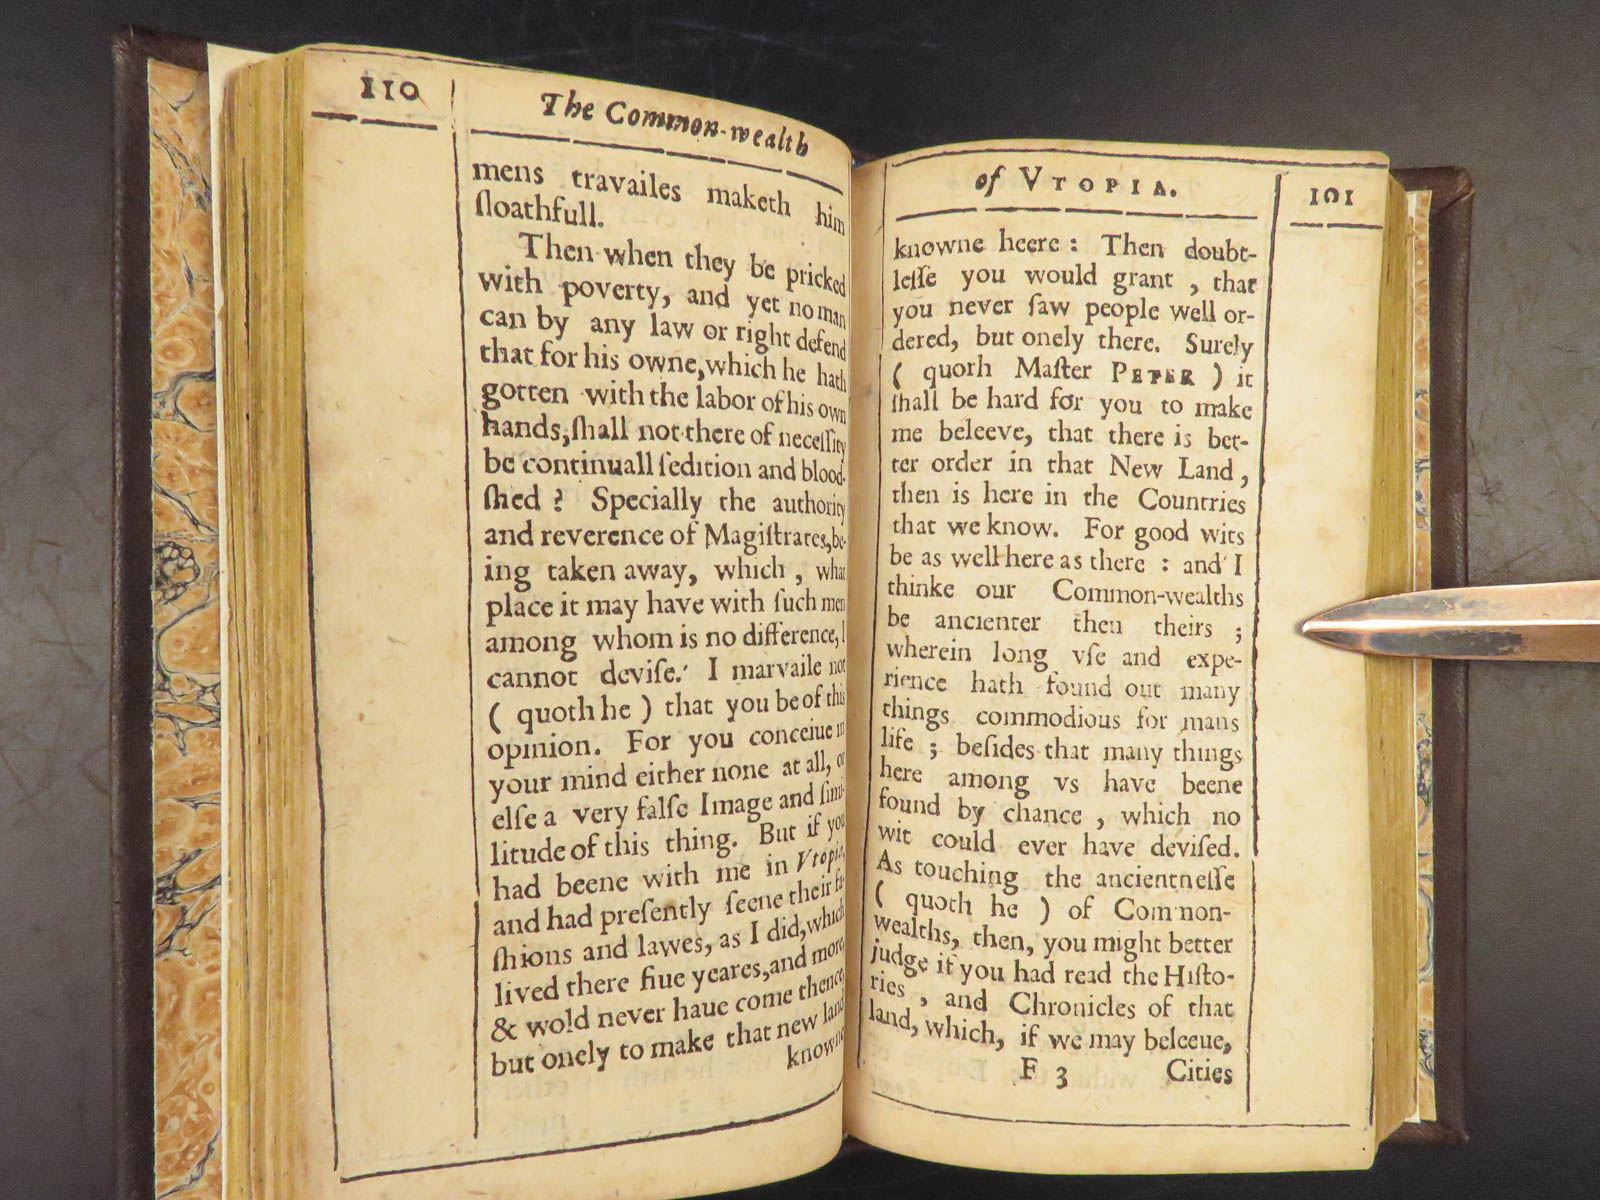 110
The Common-wealth
mens travailes maketh him
ſloathfull.
Then when they be pricked
with poverty, and yet no man
can by any law or right defend
that for his owne, which he hath
gotten with the labor of his own
hands, ſhall not there of neceſſity
be continuall ſedition and blood-
ſhed ? Specially the authority
and reverence of Magiſtrates, be-
ing taken away, which , what
place it may have with ſuch men
among whom is no difference, I
cannot deviſe. I marvaile not
( quoth he ) that you be of this
opinion. For you conceiue in
your mind either none at all, or
elſe a very falſe Image and ſimi-
litude of this thing. But if you
had beene with me in Vtopia,
and had preſently ſeene their fa-
ſhions and lawes, as I did, which
lived there fiue yeares, and more,
& wold never haue come thence,
but onely to make that new land
knowne
of VTOPIA.
101
knowne heere : Then doubt-
leſſe you would grant , that
you never ſaw people well or-
dered, but onely there. Surely
( quorh Maſter PETER ) it
ſhall be hard for you to make
me beleeve, that there is bet-
ter order in that New Land ,
then is here in the Countries
that we know. For good wits
be as well here as there : and I
thinke our Common-wealths
be ancienter then theirs ;
wherein long vſe and expe-
rience hath found out many
things commodious for mans
life ; beſides that many things
here among vs have beene
found by chance , which no
wit could ever have deviſed.
As touching the ancientneſſe
( quoth he ) of Common-
wealths, then, you might better
judge if you had read the Hiſto-
ries , and Chronicles of that
land, which, if we may beleeue,
F 3 Cities